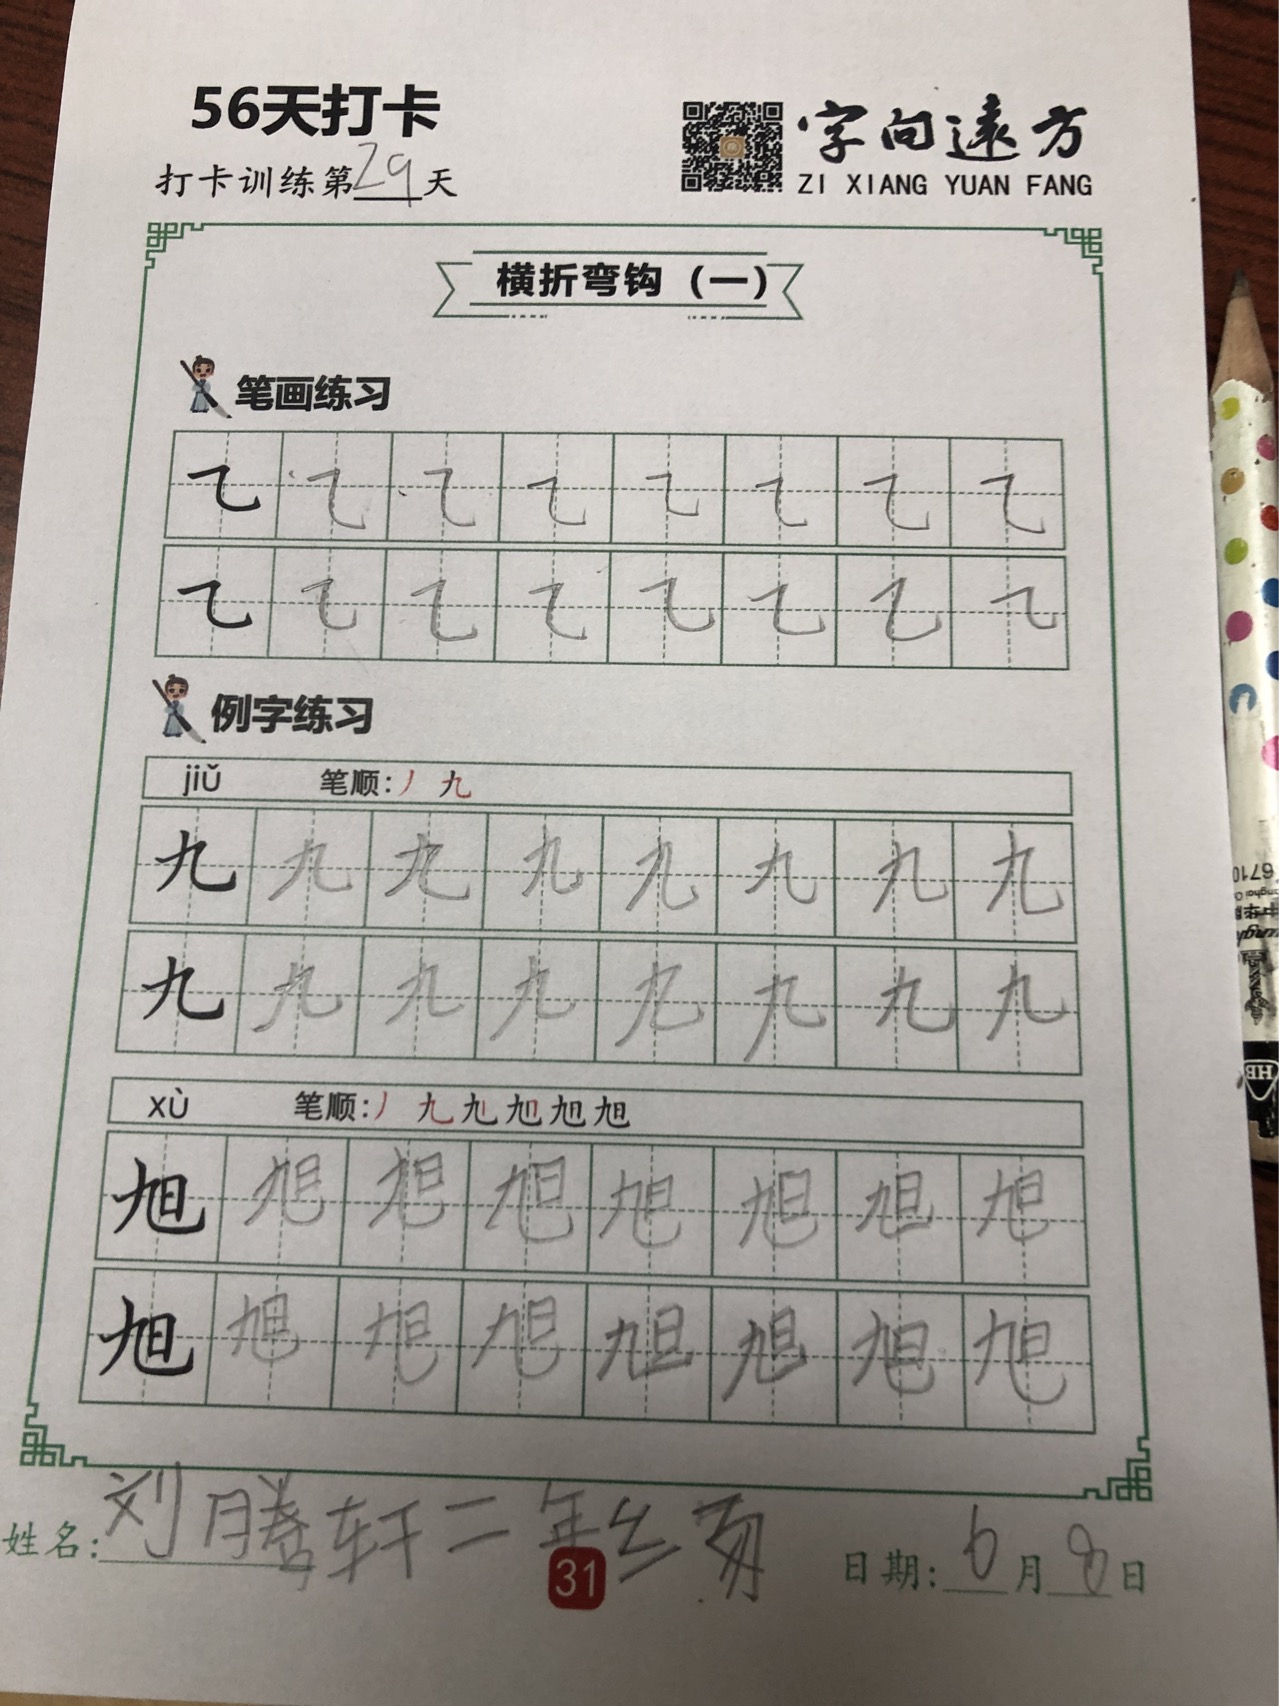 56天打卡
打卡训练第29天
字向遠方
ZI XIANG YUAN FANG
横折弯钩（一）
笔画练习
㇈ ㇈ ㇈ ㇈ ㇈ ㇈ ㇈ ㇈
㇈ ㇈ ㇈ ㇈ ㇈ ㇈ ㇈ ㇈
例字练习
jiǔ 笔顺:丿 九
九 九 九 九 九 九 九 九
九 九 九 九 九 九 九 九
xù 笔顺:丿 九 旭
旭 旭 旭 旭 旭 旭 旭 旭
旭 旭 旭 旭 旭 旭 旭 旭
姓名:刘腾轩二年
日期:6月8日
31
6710
HB